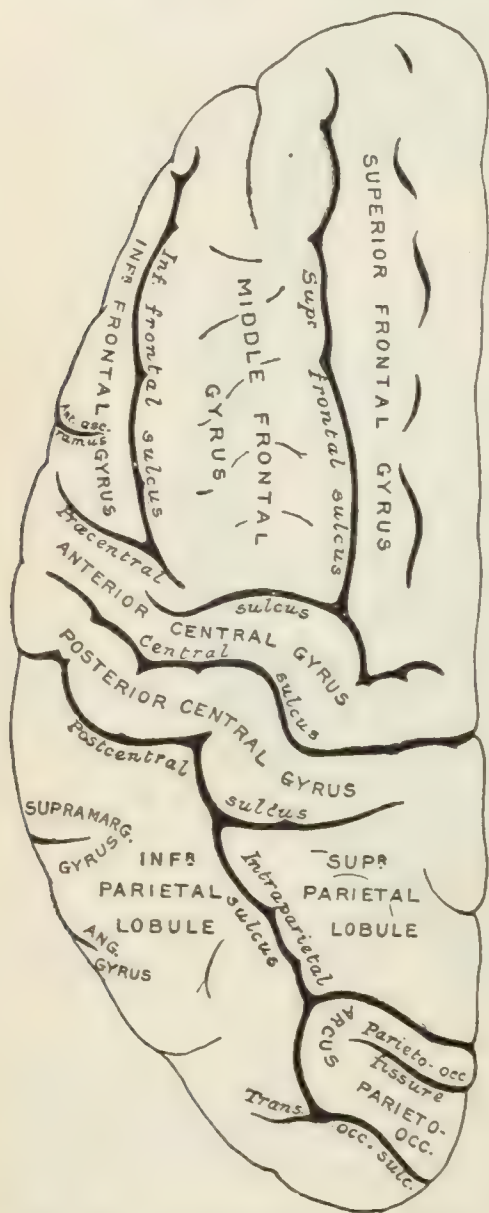 SUPERIOR FRONTAL GYRUS
Supr. frontal sulcus
MIDDLE FRONTAL
GYRUS
Inf. frontal sulcus
INFR. FRONTAL GYRUS
Ant. asc.
ramus
Præcentral sulcus
ANTERIOR CENTRAL GYRUS
Central sulcus
POSTERIOR CENTRAL GYRUS
Postcentral sulcus
SUPRAMARG.
GYRUS
INFR.
PARIETAL
LOBULE
SUPR.
PARIETAL
LOBULE
Intraparietal sulcus
ANG.
GYRUS
ARCUS
PARIETO-
OCC.
Parieto-occ
fissure
Trans. occ. sulc.